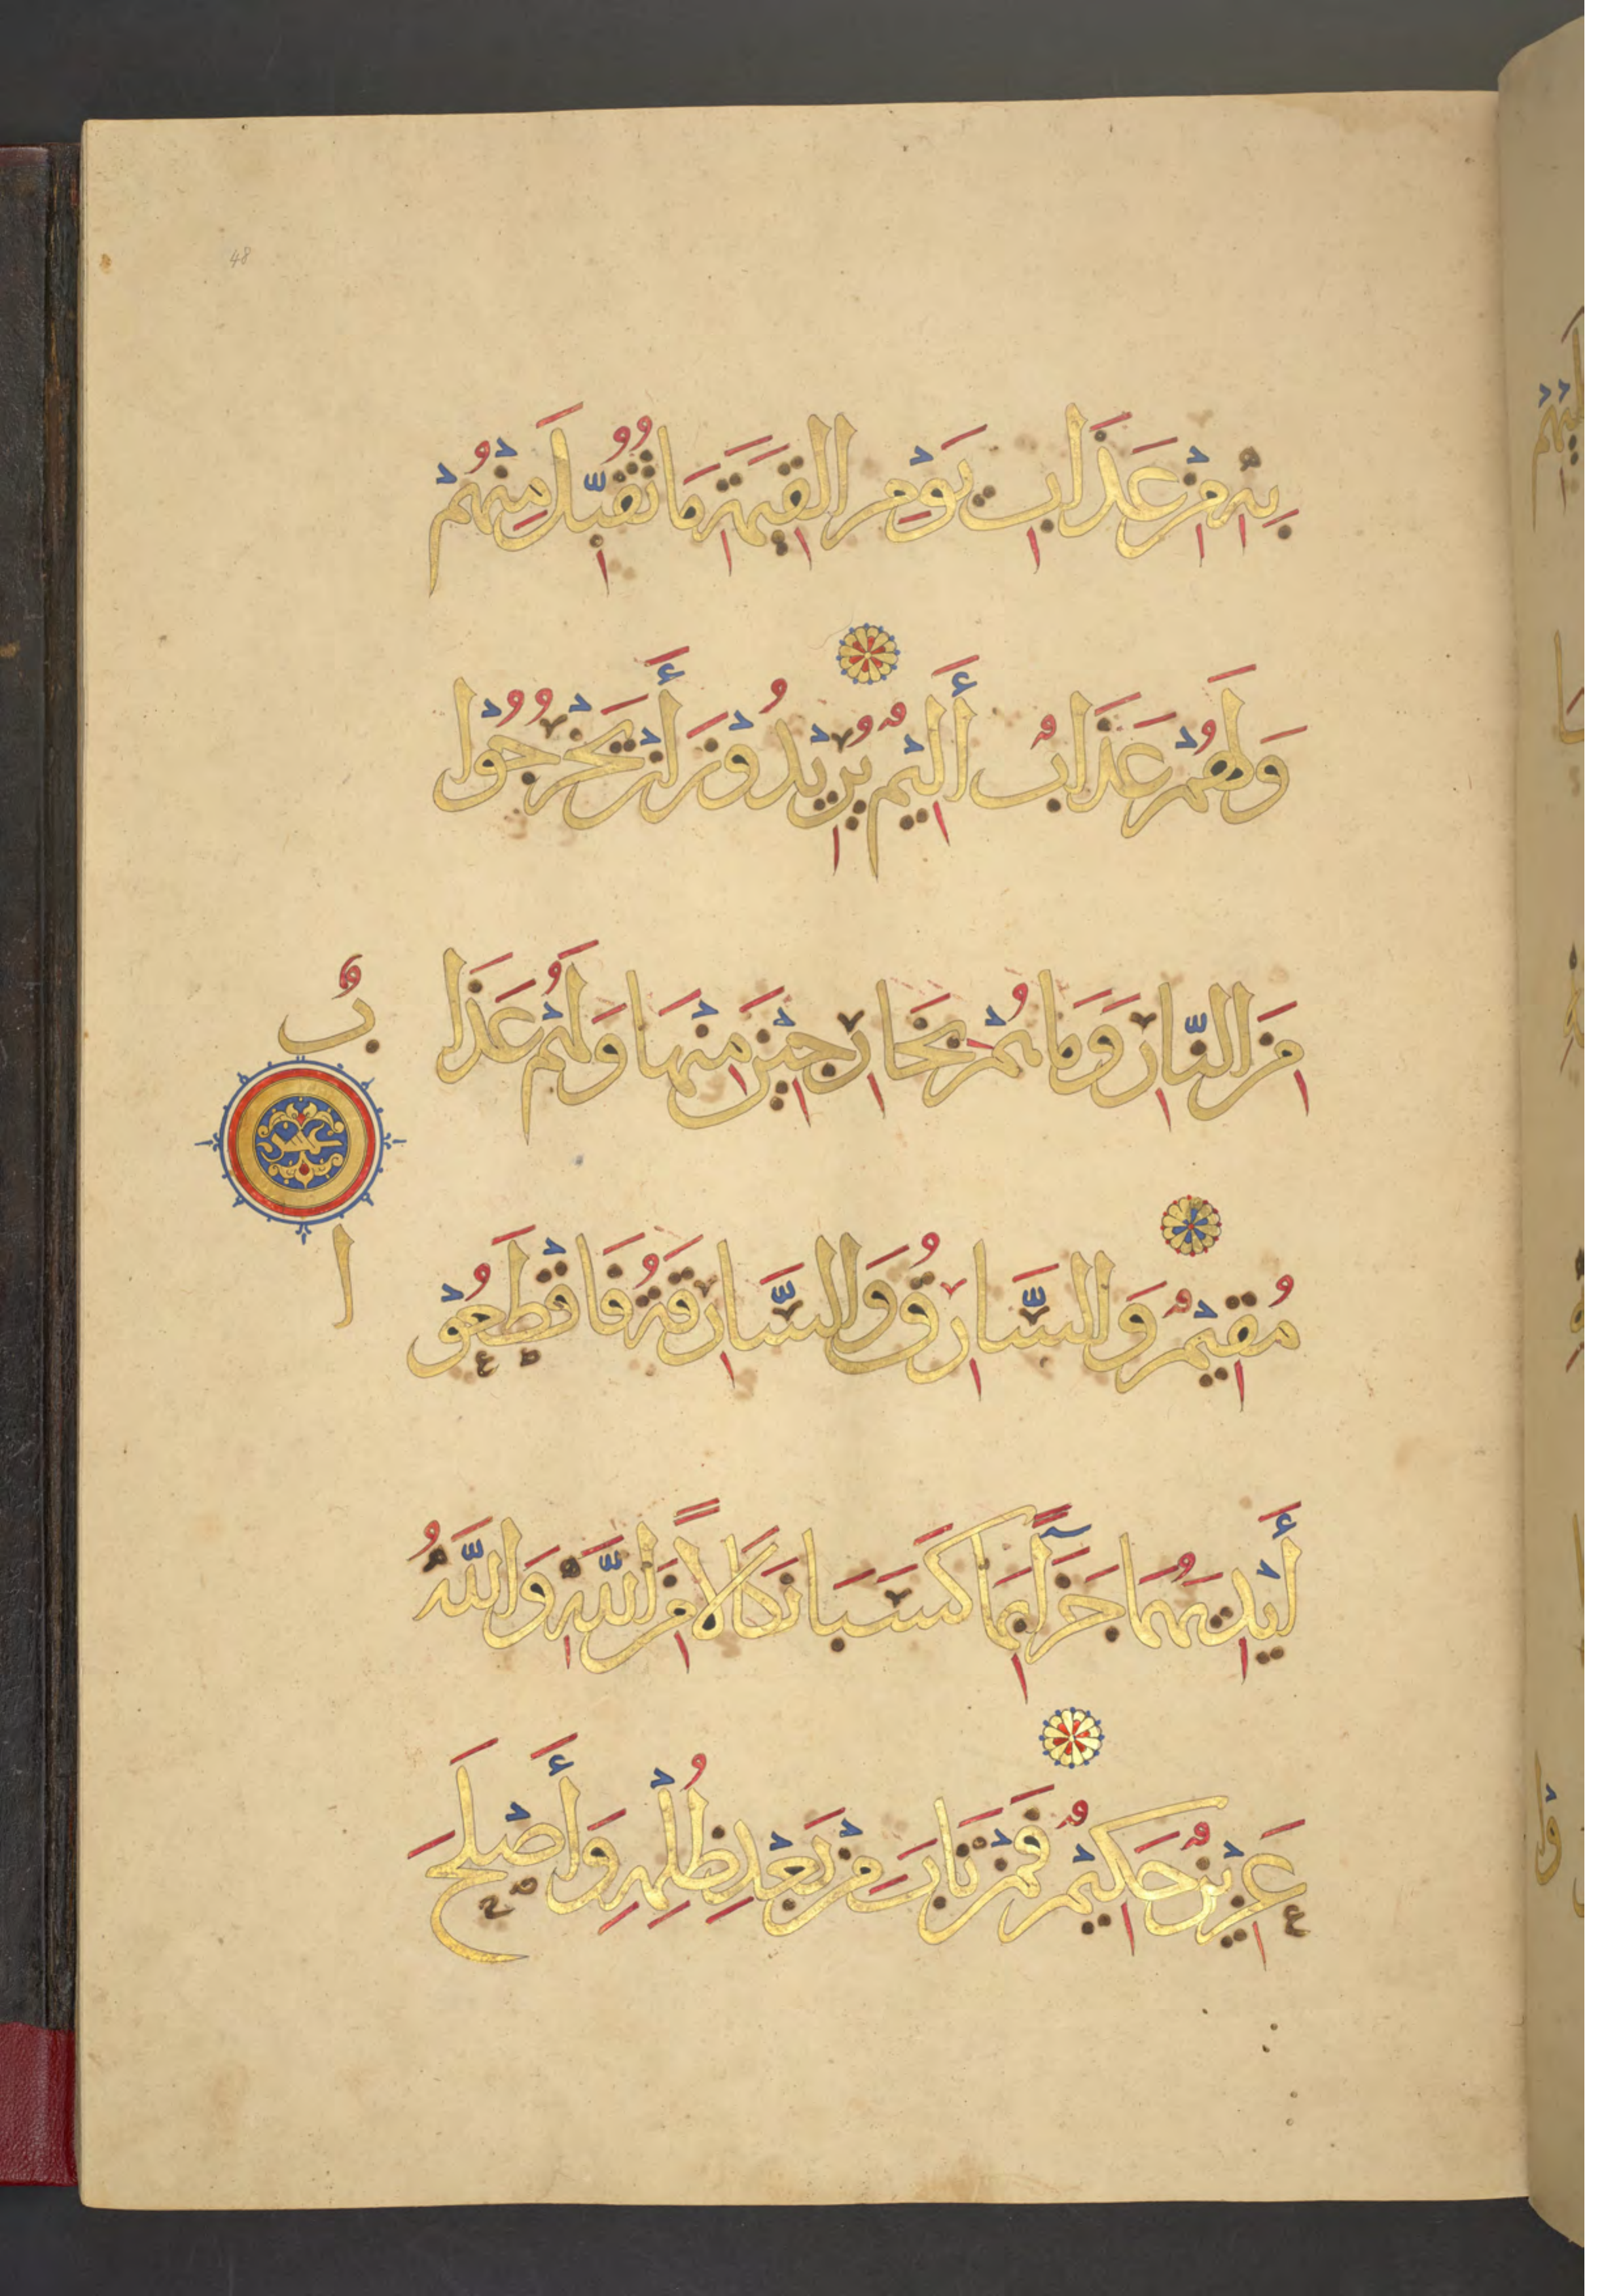 48
بِهِ مِنْ عَذَابِ يَوْمِ الْقِيَمَةِ مَا تُقُبِّلَ مِنْهُمْ
وَلَهُمْ عَذَابٌ أَلِيْمٌ يُرِيْدُوْنَ أَنْ يَخْرُجُوْا
مِنَ النَّارِ وَمَا هُمْ بِخَارِجِيْنَ مِنْهَا وَلَهُمْ عَذَا
بٌ
عشر
ا
مُقِيْمٌ وَالسَّارِقُ وَالسَّارِقَةُ فَاقْطَعُوْ
أَيْدِيَهُمَا جَزَآءً بِمَا كَسَبَا نَكَالًا مِنَ اللَّهِ وَاللَّهُ
عَزِيْزٌ حَكِيْمٌ فَمَنْ تَابَ مِنْ بَعْدِ ظُلْمِهِ وَأَصْلَحَ